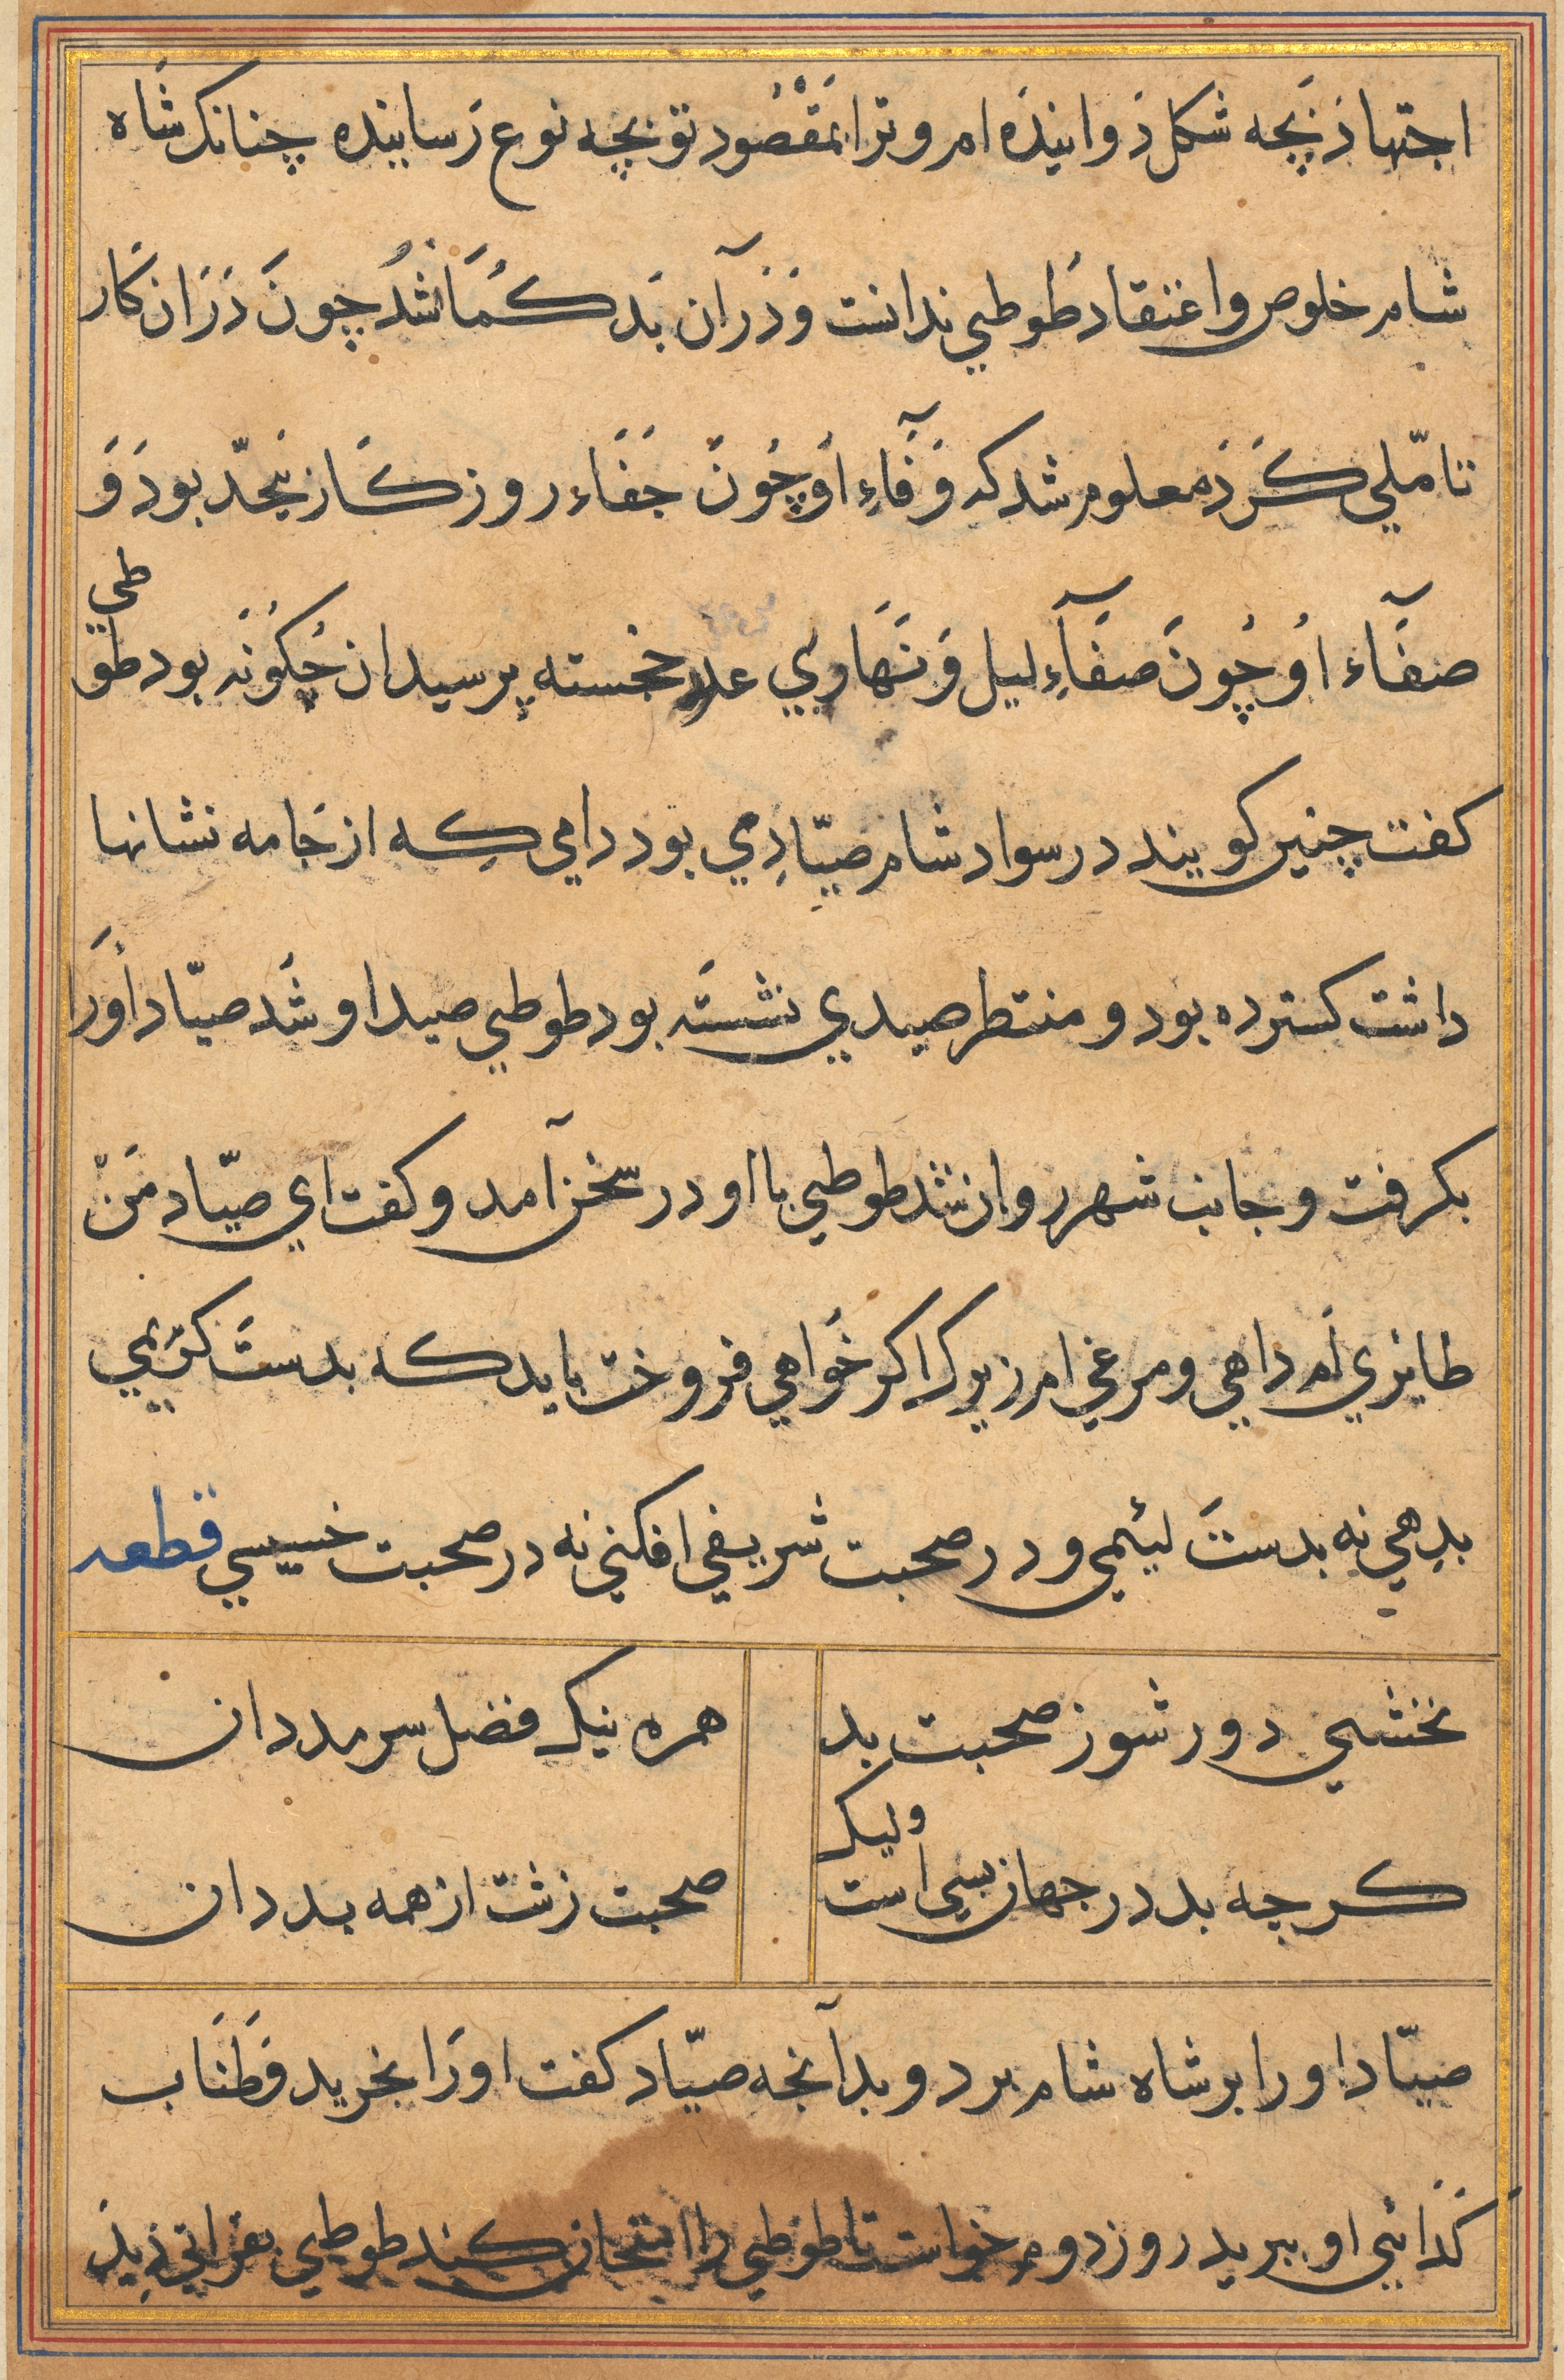 اجتهاذ بَچه شکل ذوانیذه ام و ترا بَمَقْصُود تو بچه نوع رَسانیده چنانک شاه
شام خلوص و اعتقاد طُوطی ندانست وَ ذرآن بَد کُمَان شُدْ چونَ دَرَان کَار
تامّلی کَرَدَ معلوم شد که وَفَآءِ اوُ چُونَ جَفَاء روزکَار بیحدّ بودَ وَ
صفَآء اوُ چُونَ صفَآءِ لیل وَ نَهَاری خجسته پرسید ان چُکوُنَه بود طوطی
کفت چنین کویند در سواد شام صیّادِی بود دامی کِه از جَامه نشانها
داشت کسترده بود و منتظر صیدی نشستَه بود طوطی صید او شَد صیّاد اُورَا
بکرفت و جانب شهر روان شد طوطی با او در سخن آمد و کفت ای صیّاد مَنْ
طایری اَم داهی و مرغی ام زیرک اکر خَواهی فروخت باید که بدستَ کَریمی
بدِهی نه بدستَ لیٔمی و در صحبت شریفی افکنی نه در صحبت خسیسی قطعه
نخشبی دور شو ز صحبت بد همره نیک فضل سرمد دان
کرچه بد در جهان بسی است ولیک صحبت زشت از همه بد دان
صیّاد او را بر شاه شام برد و بدآنچه صیّاد کفت اورَا بخرید وَ طَنَاب
کَدَائی او ببرید روز دوم خواست تا طوطی را امتحان کند طوطی بفراتی ذید